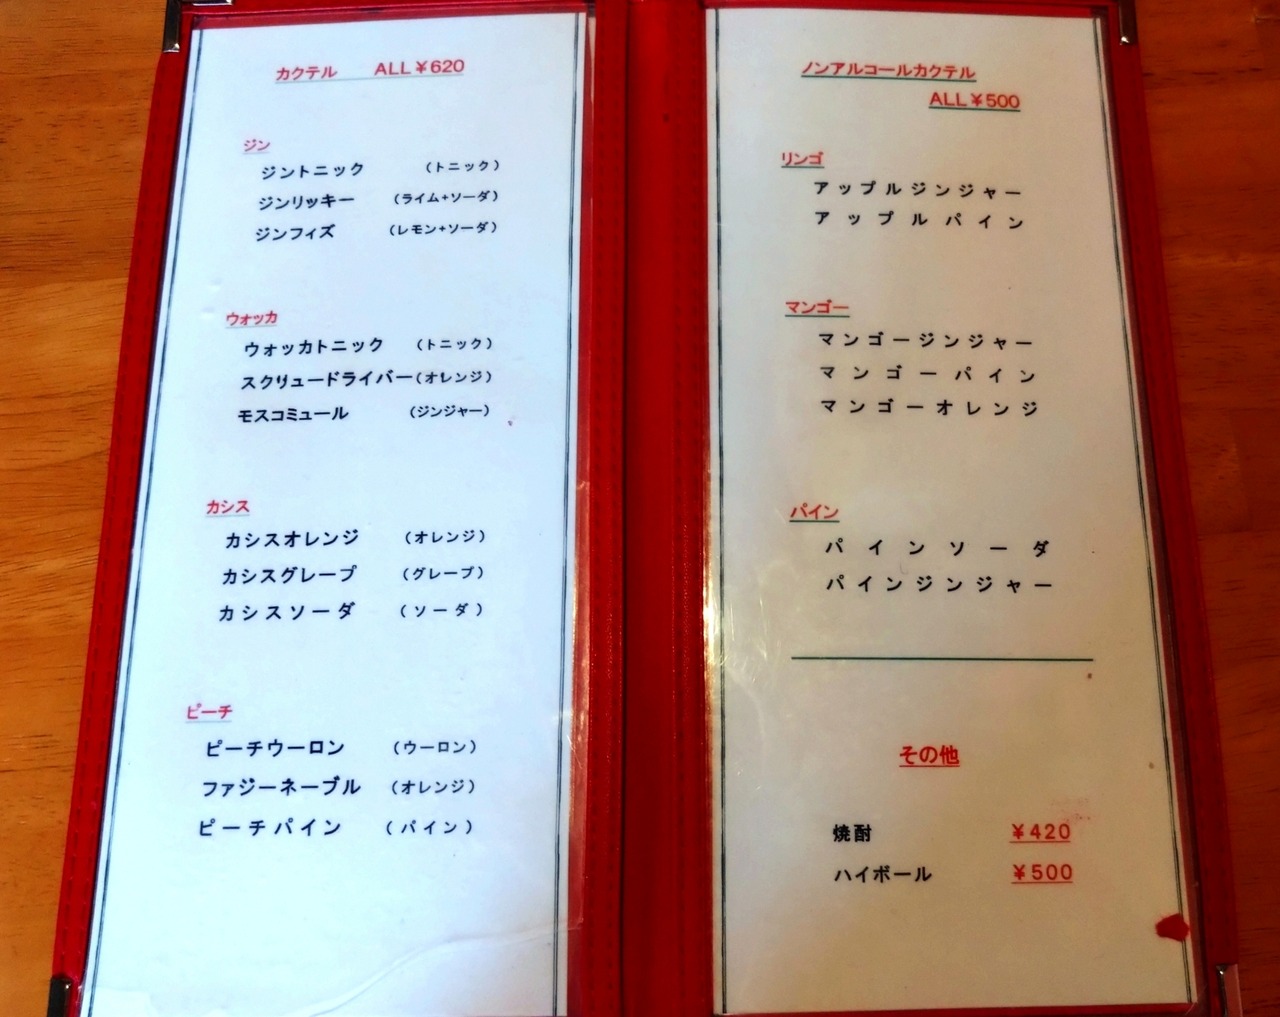 カクテル ALL￥620
ジン
ジントニック (トニック)
ジンリッキー (ライム+ソーダ)
ジンフィズ (レモン+ソーダ)
ウォッカ
ウォッカトニック (トニック)
スクリュードライバー(オレンジ)
モスコミュール (ジンジャー)
カシス
カシスオレンジ (オレンジ)
カシスグレープ (グレープ)
カシスソーダ (ソーダ)
ピーチ
ピーチウーロン (ウーロン)
ファジーネーブル (オレンジ)
ピーチパイン (パイン)
ノンアルコールカクテル
ALL￥500
リンゴ
アップルジンジャー
アップルパイン
マンゴー
マンゴージンジャー
マンゴーパイン
マンゴーオレンジ
パイン
パインソーダ
パインジンジャー
その他
焼酎 ￥420
ハイボール ￥500